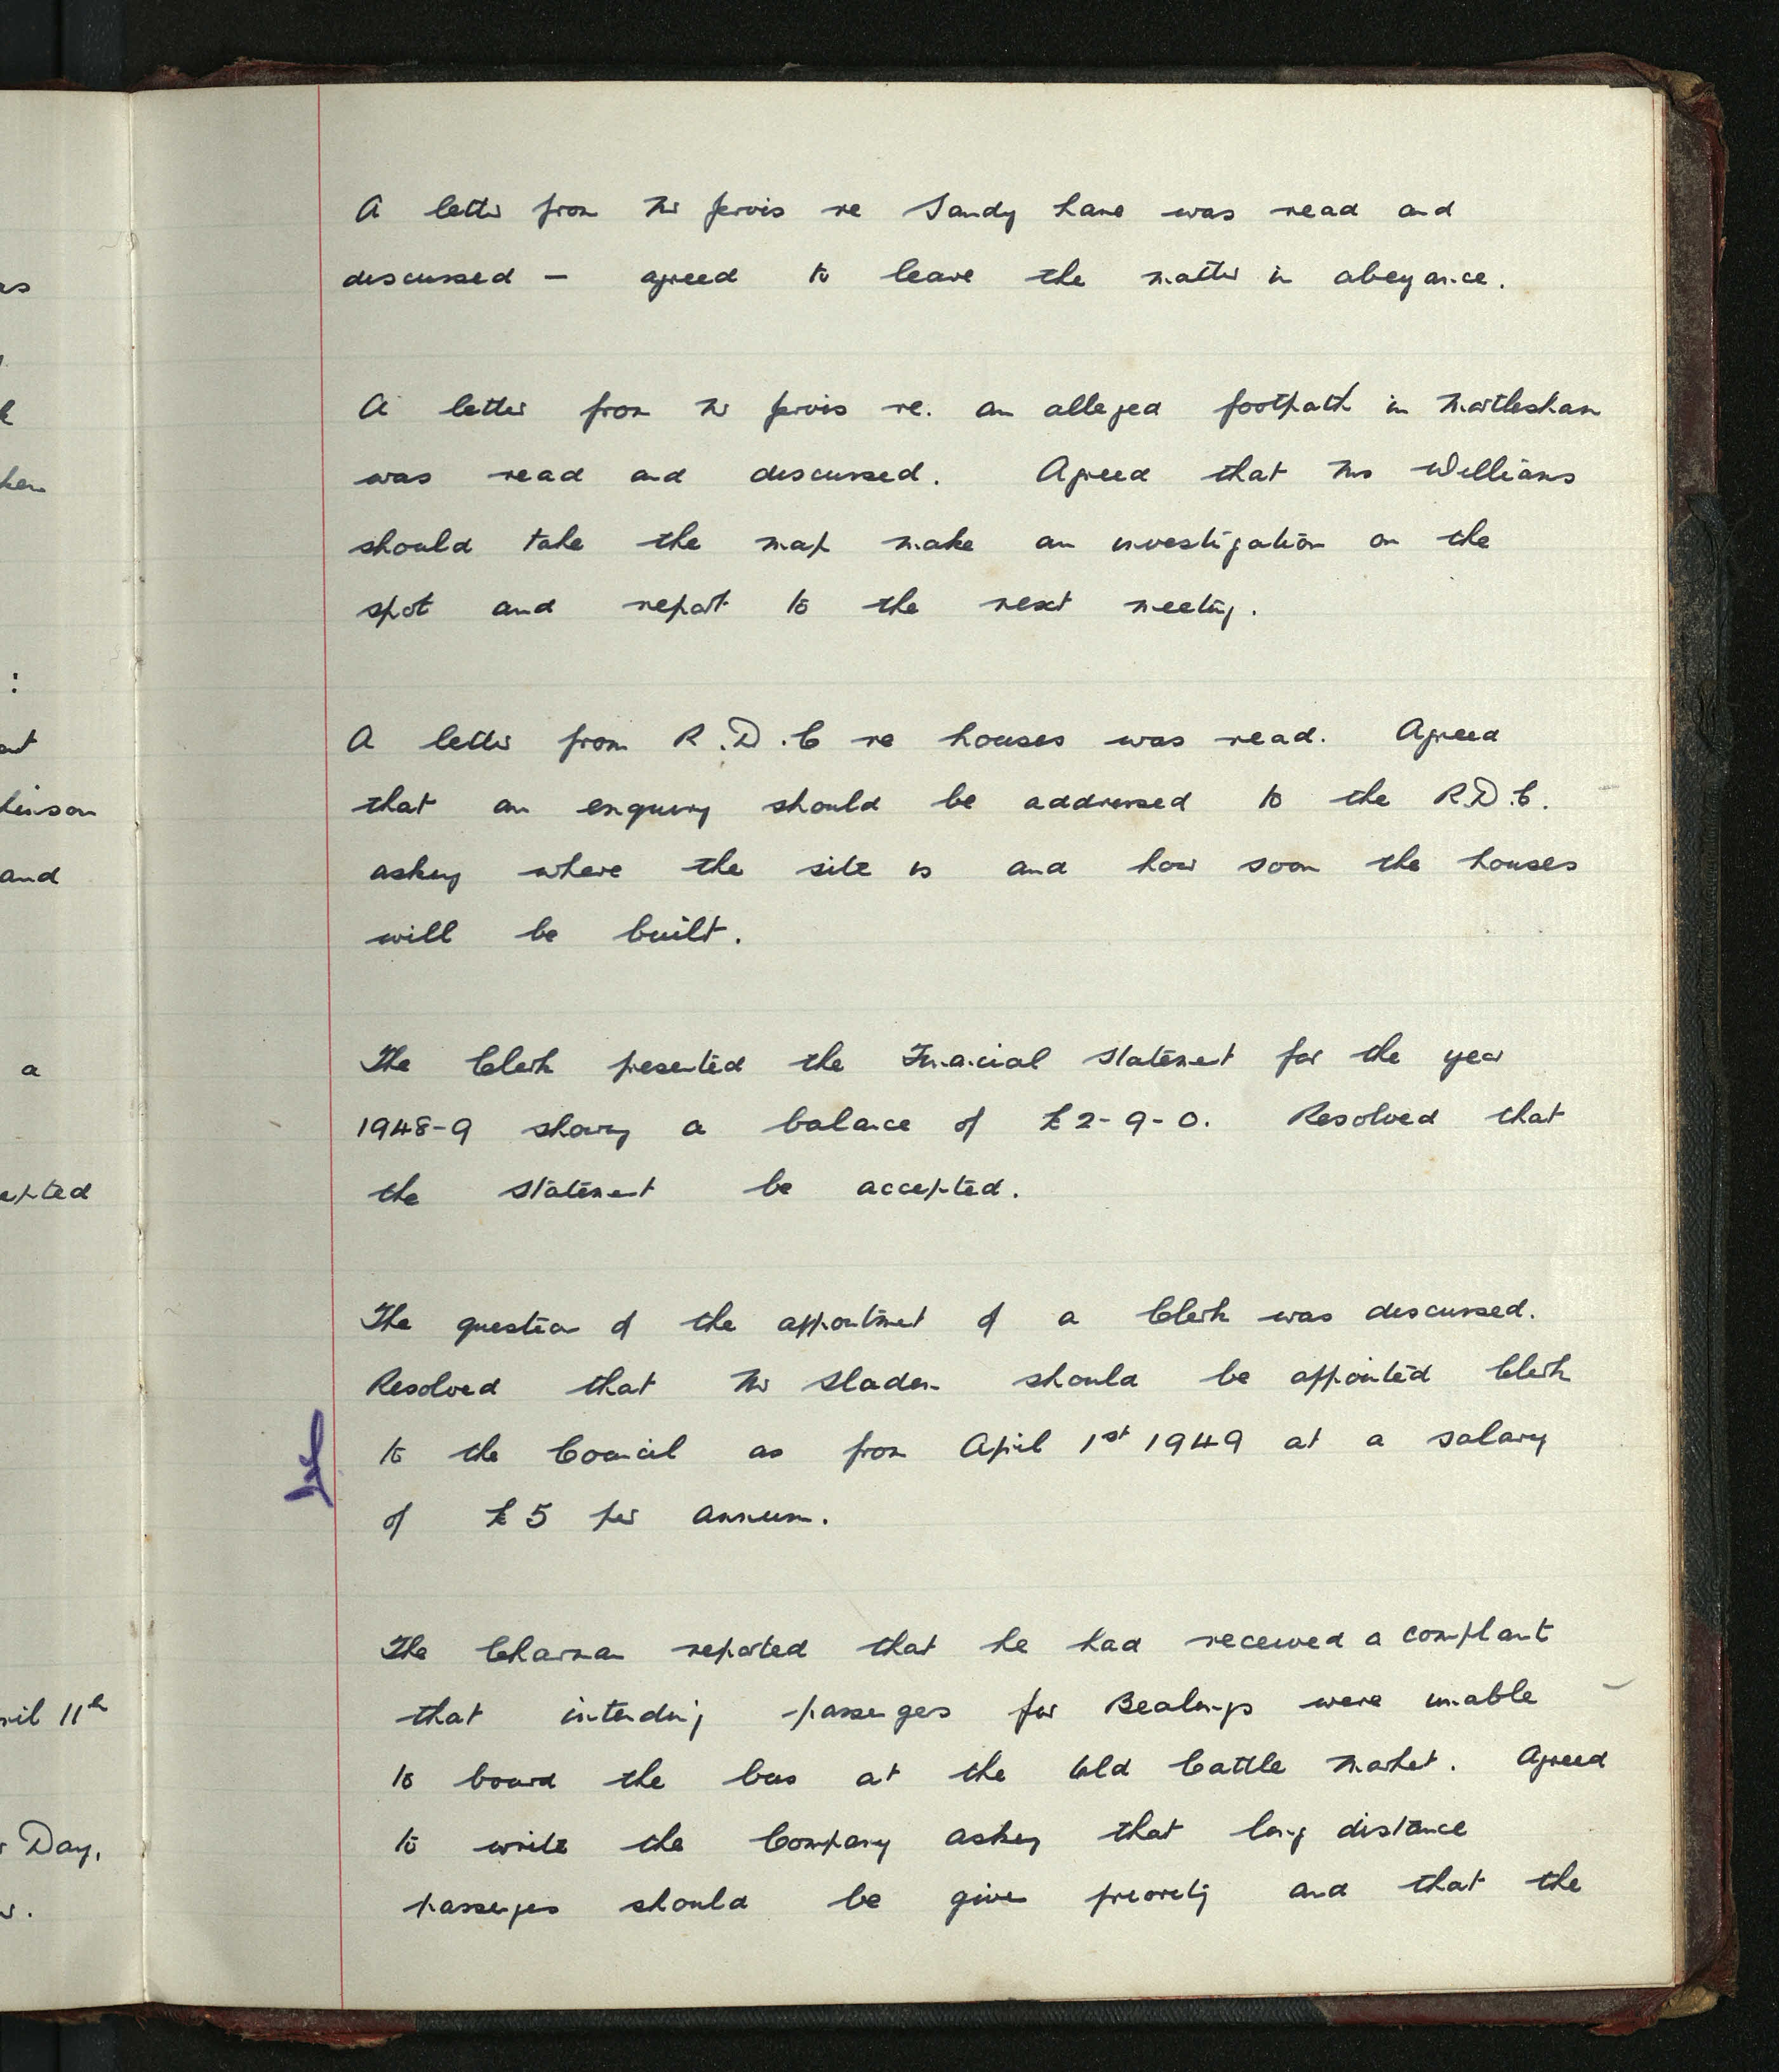 A letter from Mr Jervis re Sandy Lane was read and
discussed – agreed to leave the matter in abeyance.
A letter from Mr Jervis re. an alleged footpath in Martlesham
was read and discussed. Agreed that Mrs Williams
should take the map make an investigation on the
spot and report to the next meeting.
A letter from R.D.C re houses was read. Agreed
that an enquiry should be addressed to the R.D.C.
asking where the site is and how soon the houses
will be built.
The Clerk presented the Financial Statement for the year
1948-9 showing a balance of £2-9-0. Resolved that
the Statement be accepted.
The question of the appointment of a Clerk was discussed.
Resolved that Mr Sladen should be appointed Clerk
to the Council as from April 1st 1949 at a salary
of £5 per annum.
The Chairman reported that he had received a complaint
that intending passengers for Bealings were unable
to board the bus at the Old Cattle Market. Agreed
to write the Company asking that long distance
passengers should be given priority and that the